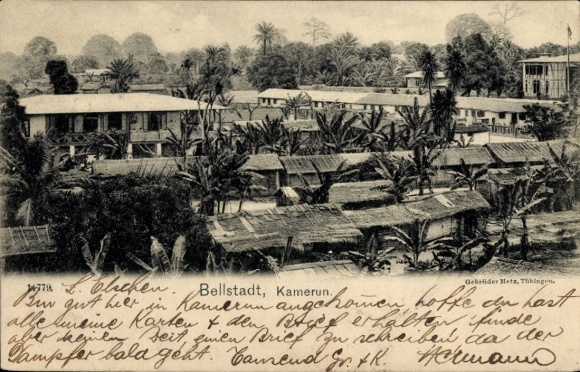 14779.
L. Elschen.
Bellstadt, Kamerun.
Gebrüder Metz, Tübingen.
Bin gut hier in Kamerun angekommen hoffe du hast
alle meine Karten & den Brief erhalten finde
aber keinen Zeit einen Brief zu schreiben da der
Dampfer bald geht. Tausend Gr. & K. Hermann